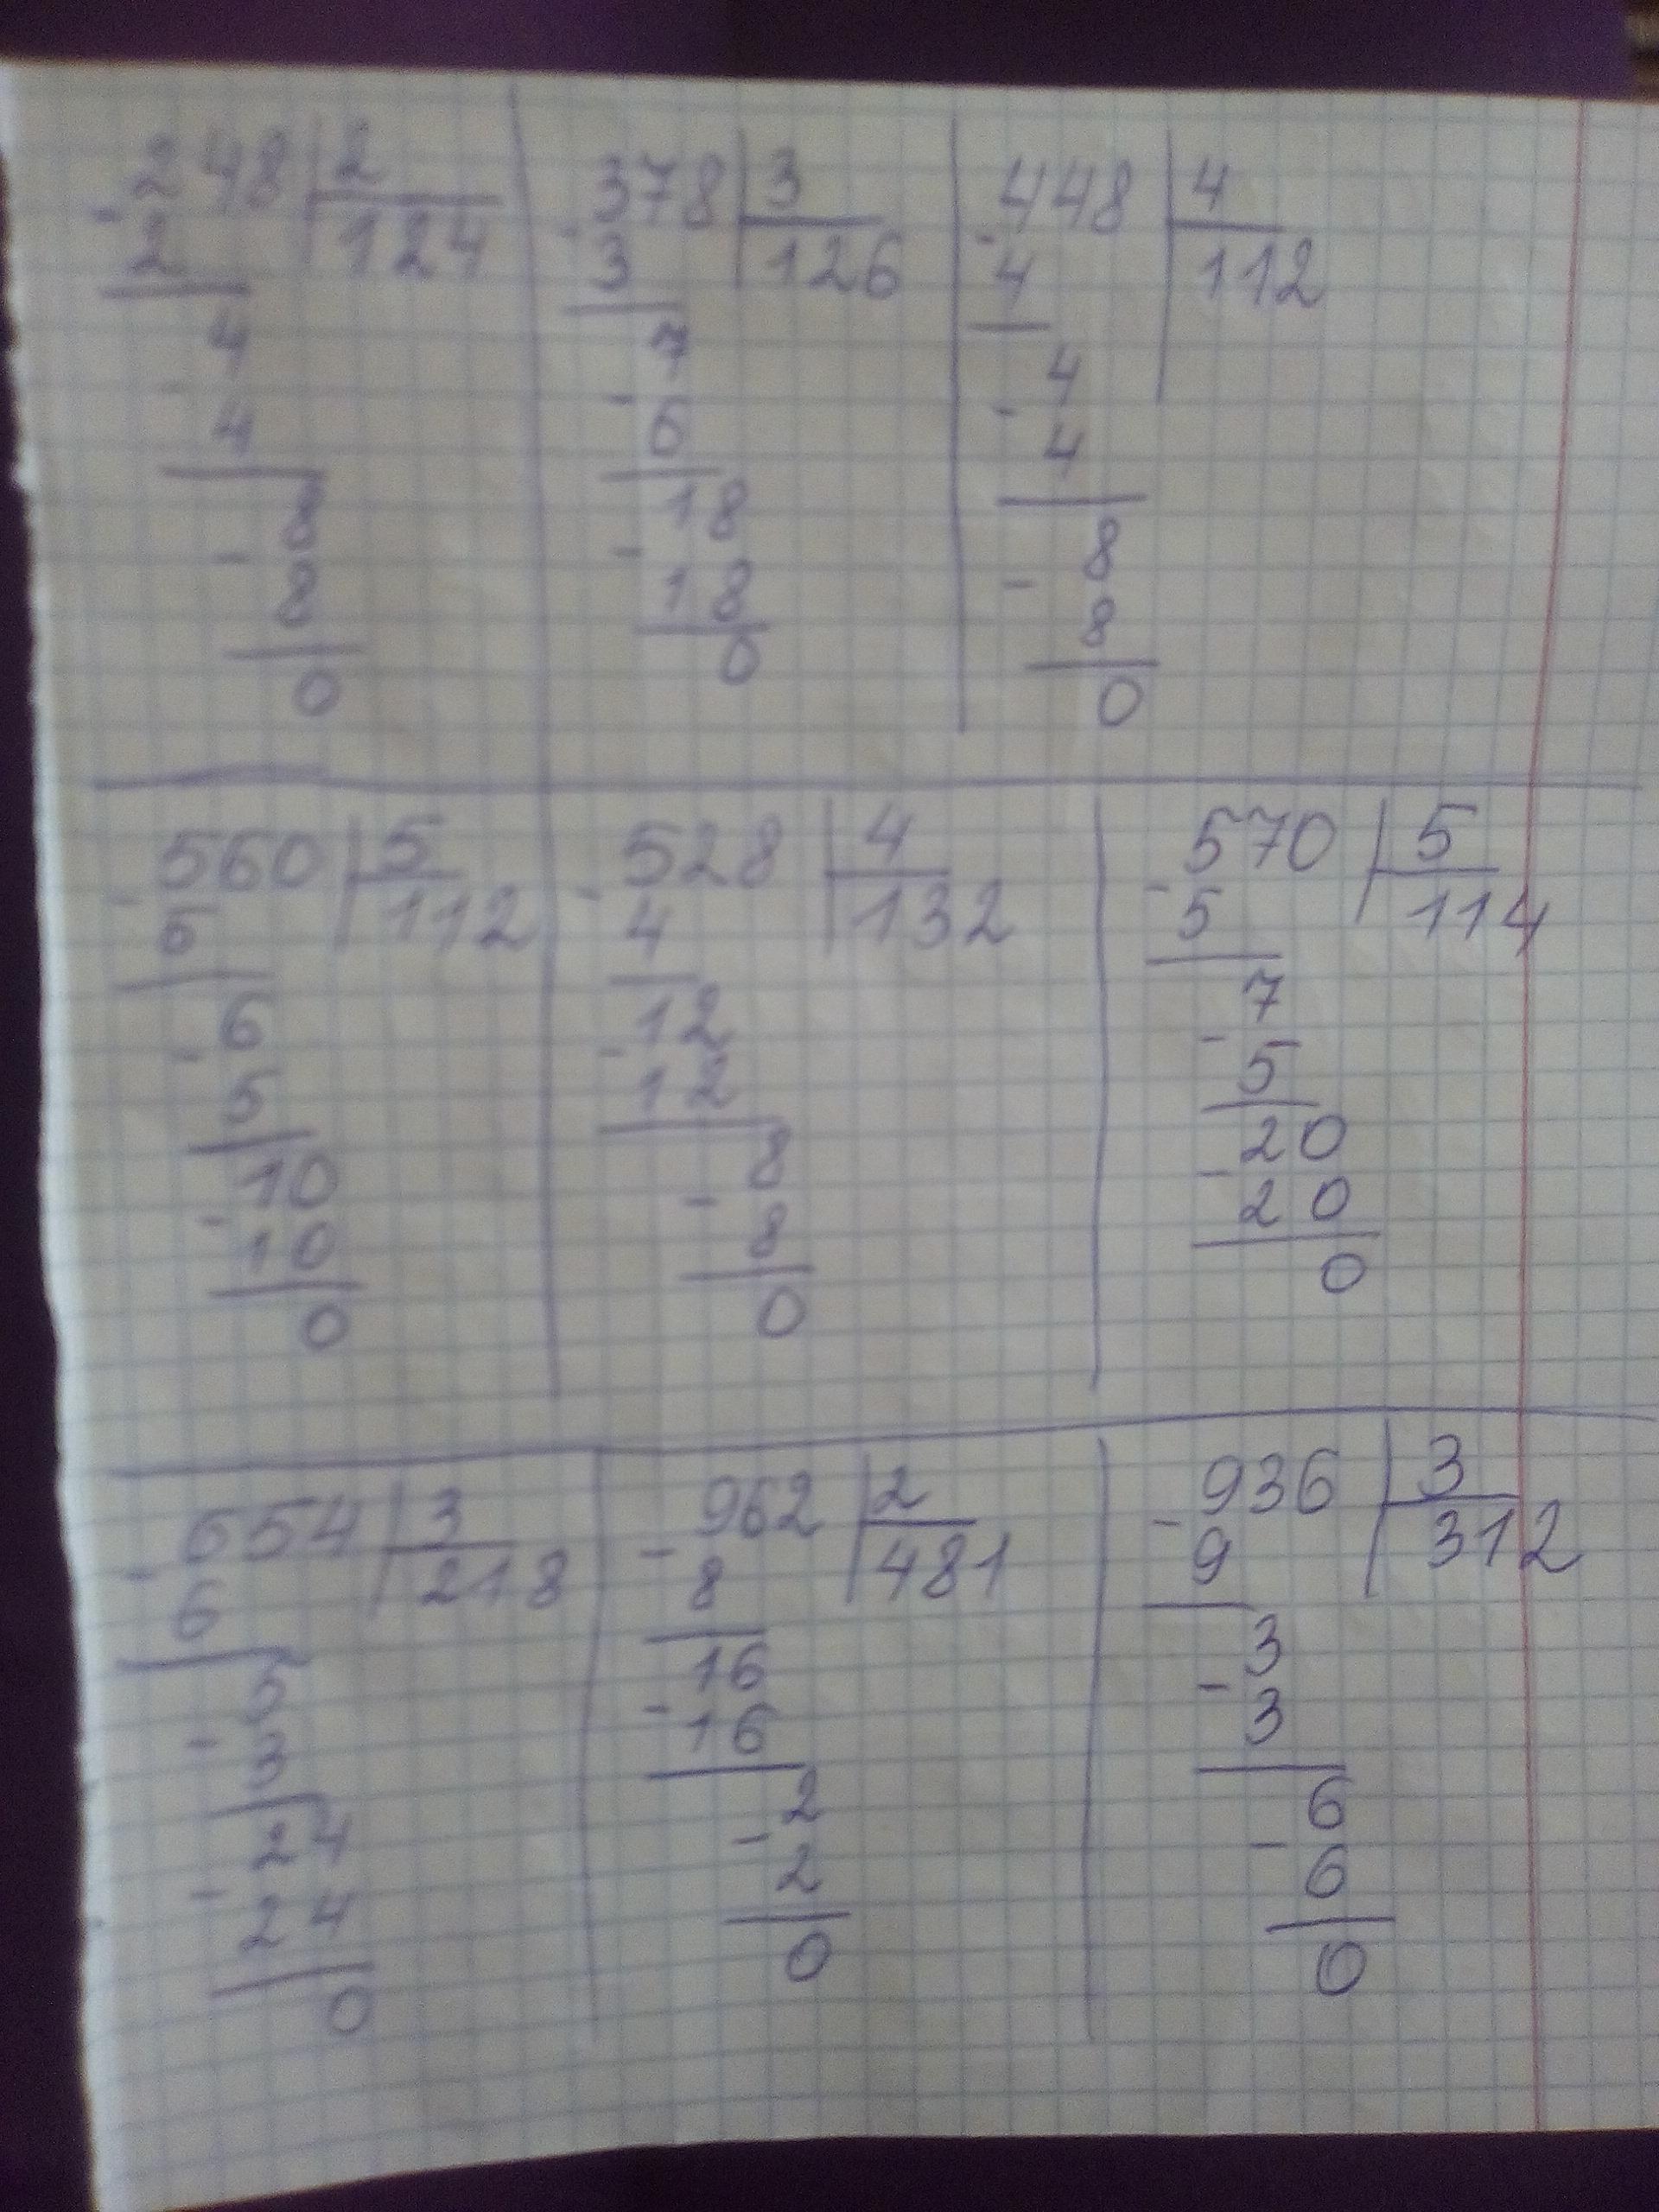 - 248 | 2
2 | 124
4
4
8
- 8
0
- 378 | 3
3 | 126
7
- 6
18
- 18
0
- 448 | 4
4 | 112
4
- 4
8
- 8
0
- 560 | 5
5 | 112
- 6
5
10
- 10
0
- 528 | 4
4 | 132
- 12
12
8
- 8
0
- 570 | 5
5 | 114
7
- 5
20
- 20
0
- 654 | 3
6 | 218
5
- 3
24
- 24
0
- 962 | 2
8 | 481
16
- 16
2
- 2
0
- 936 | 3
9 | 312
3
- 3
6
- 6
0